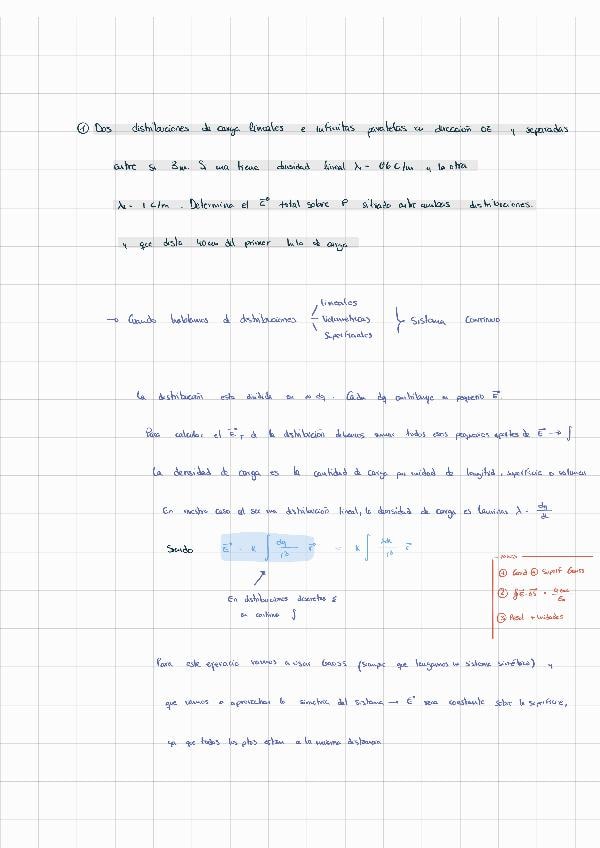 ① Dos distribuciones de carga lineales e infinitas paralelas en dirección OZ y separadas
entre si 3m. Si una tiene densidad lineal λ = 0'6 C/m y la otra
λ = 1 C/m. Determina el E total sobre P situado entre ambas distribuciones.
y que dista 40 cm del primer hilo de carga
→ Cuando hablamos d distribuciones
lineales
Volumétricas
Superficiales
Sistema CONTINUO
La distribución esta dividida en ∞ dq. Cada dq contribuye un pequeño E.
Para calcular el E_T d la distribución debemos sumar todos esos pequeños aportes de E → ∫
La densidad de carga es la cantidad de carga por unidad de longitud, superficie o volumen
En nuestro caso al ser una distribución lineal, la densidad de carga es λ = dq/dl
Siendo E = K ∫ dq/r³ r = K ∫ λdl/r³ r
En distribuciones discretas Σ
en continuo ∫
PASOS
① Coord Superf Gauss
② ∮E·dS = q enc/ε₀
③ Resul + unidades
Para este ejercicio vamos a usar Gauss (siempre que tengamos un sistema simétrico) y
que vamos a aprovechar la simetria del sistema → E sera constante sobre la superficie,
ya que todos los ptos estan a la misma distancia